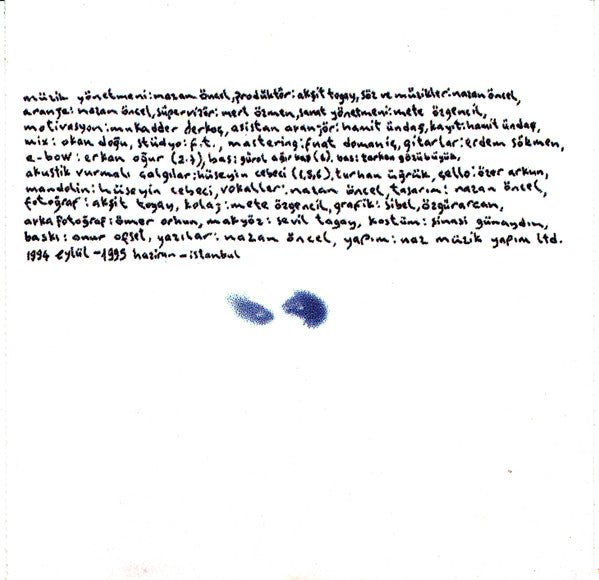 müzik yönetmeni:nazan öncel,prodüktör:akşit togay,söz ve müzikler:nazan öncel,
aranje: nazan öncel,süpervizör: mert özmen,sanat yönetmeni:mete özgencil,
motivasyon:mukadder derkoç, asistan aranjör:hamit ündaş,kayıt:hamit ündaş,
mix: okan doğu, stüdyo:f.t., mastering:fuat domaniç,gitarlar:erdem sökmen,
e-bow: erkan oğur (2.7), bas: gürol ağırbaş (6). bas: serkan gözübüyük,
akustik vurmalı çalgılar:hüseyin cebeci (1,5,6),turhan üğrük, çello:özer arkun,
mandolin: hüseyin cebeci, vokaller: nazan öncel, tasarım: nazan öncel,
fotoğraf: akşit togay, kolaj:mete özgencil,grafik: sibel,özgürarcan,
arka fotoğraf:ömer orhun, makyöz: sevil togay, kostüm: sinasi günaydın,
baskı: onur ofset, yazılar: nazan öncel, yapım: naz müzik yapım ltd.
1994 eylül-1995 haziran-istanbul